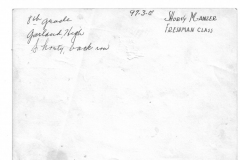 8th grade
Garland High
Shorty, back row
97-3-8
Shorty Manger
Freshman Class